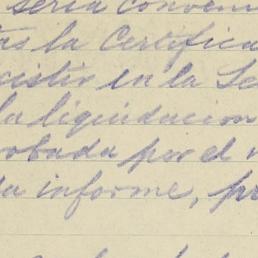 seria conveni
tas la Certifica
xistir en la Se
la liquidacion
robada por el
da informe, pr